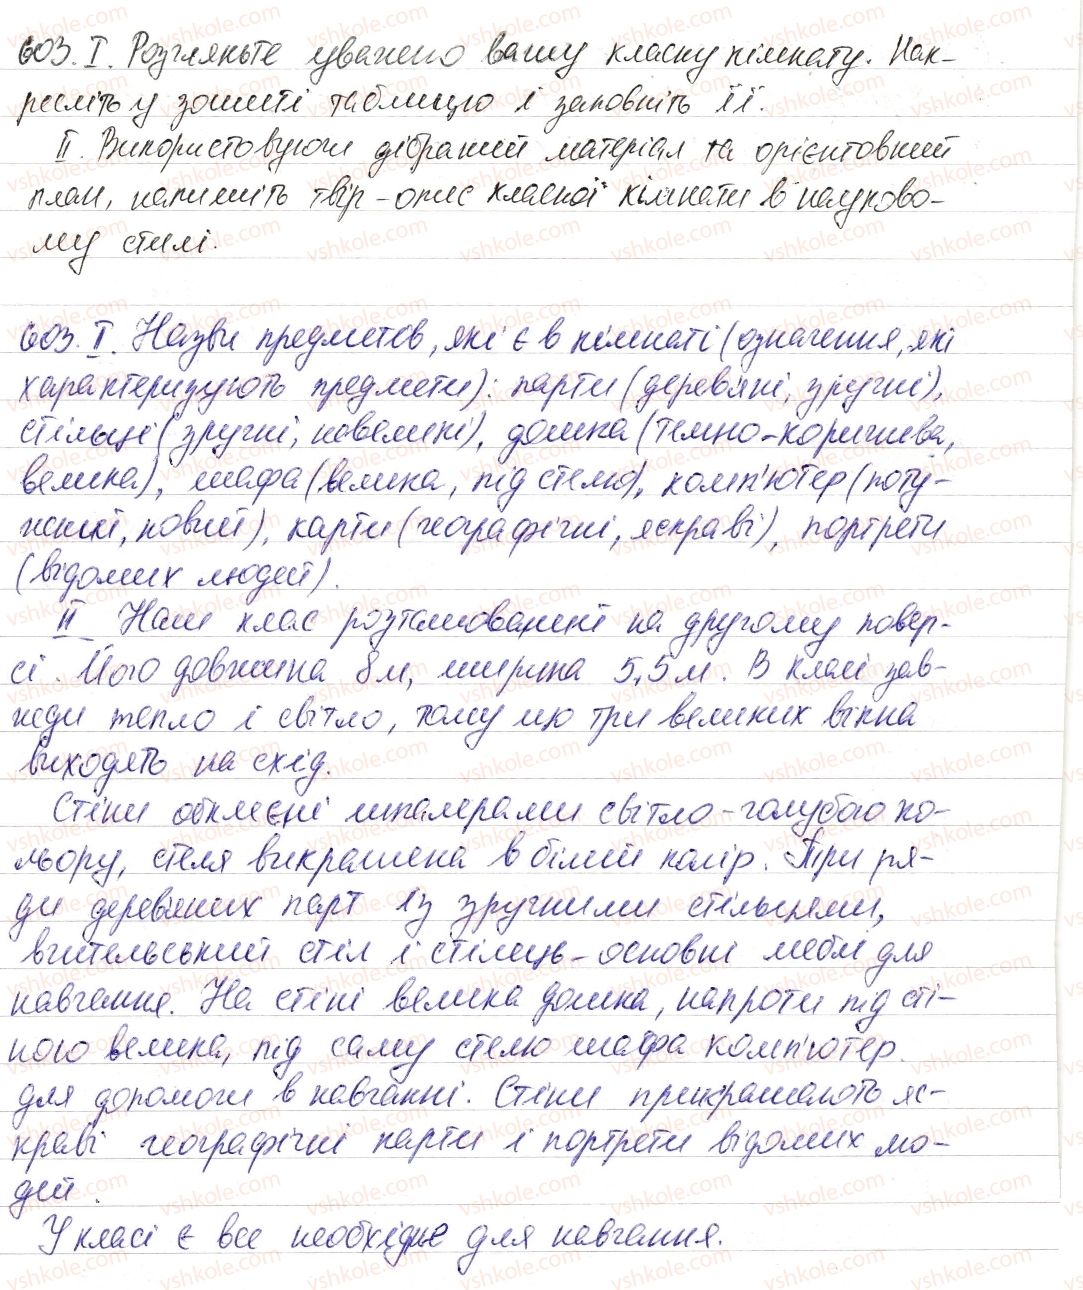 603. I. Розгляньте уважно вашу класну кімнату. Нак-
ресліть у зошиті таблицю і заповніть її.
II. Використовуючи дібраний матеріал та орієнтовний
план, напишіть твір-опис класної кімнати в науково-
му стилі.
603. I. Назви предметів, які є в кімнаті (означення, які
характеризують предмети): парти (дерев'яні, зручні),
стільці (зручні, невеликі), дошка (темно-коричнева,
велика), шафа (велика, під стелю), комп'ютер (поту-
жний, новий), карти (географічні, яскраві), портрети
(відомих людей).
II Наш клас розташований на другому повер-
сі. Його довжина 8 м, ширина 5,5 м. В класі зав-
жди тепло і світло, тому що три великих вікна
виходять на схід.
Стіни обклеєні шпалерами світло-голубого ко-
льору, стеля викрашена в білий колір. Три ря-
ди дерев'яних парт із зручними стільцями,
вчительський стіл і стілець - основні меблі для
навчання. На стіні велика дошка, напроти під сті-
ною велика, під саму стелю шафа комп'ютер
для допомоги в навчанні. Стіни прикрашають яс-
краві географічні карти і портрети відомих лю-
дей.
У класі є все необхідне для навчання.